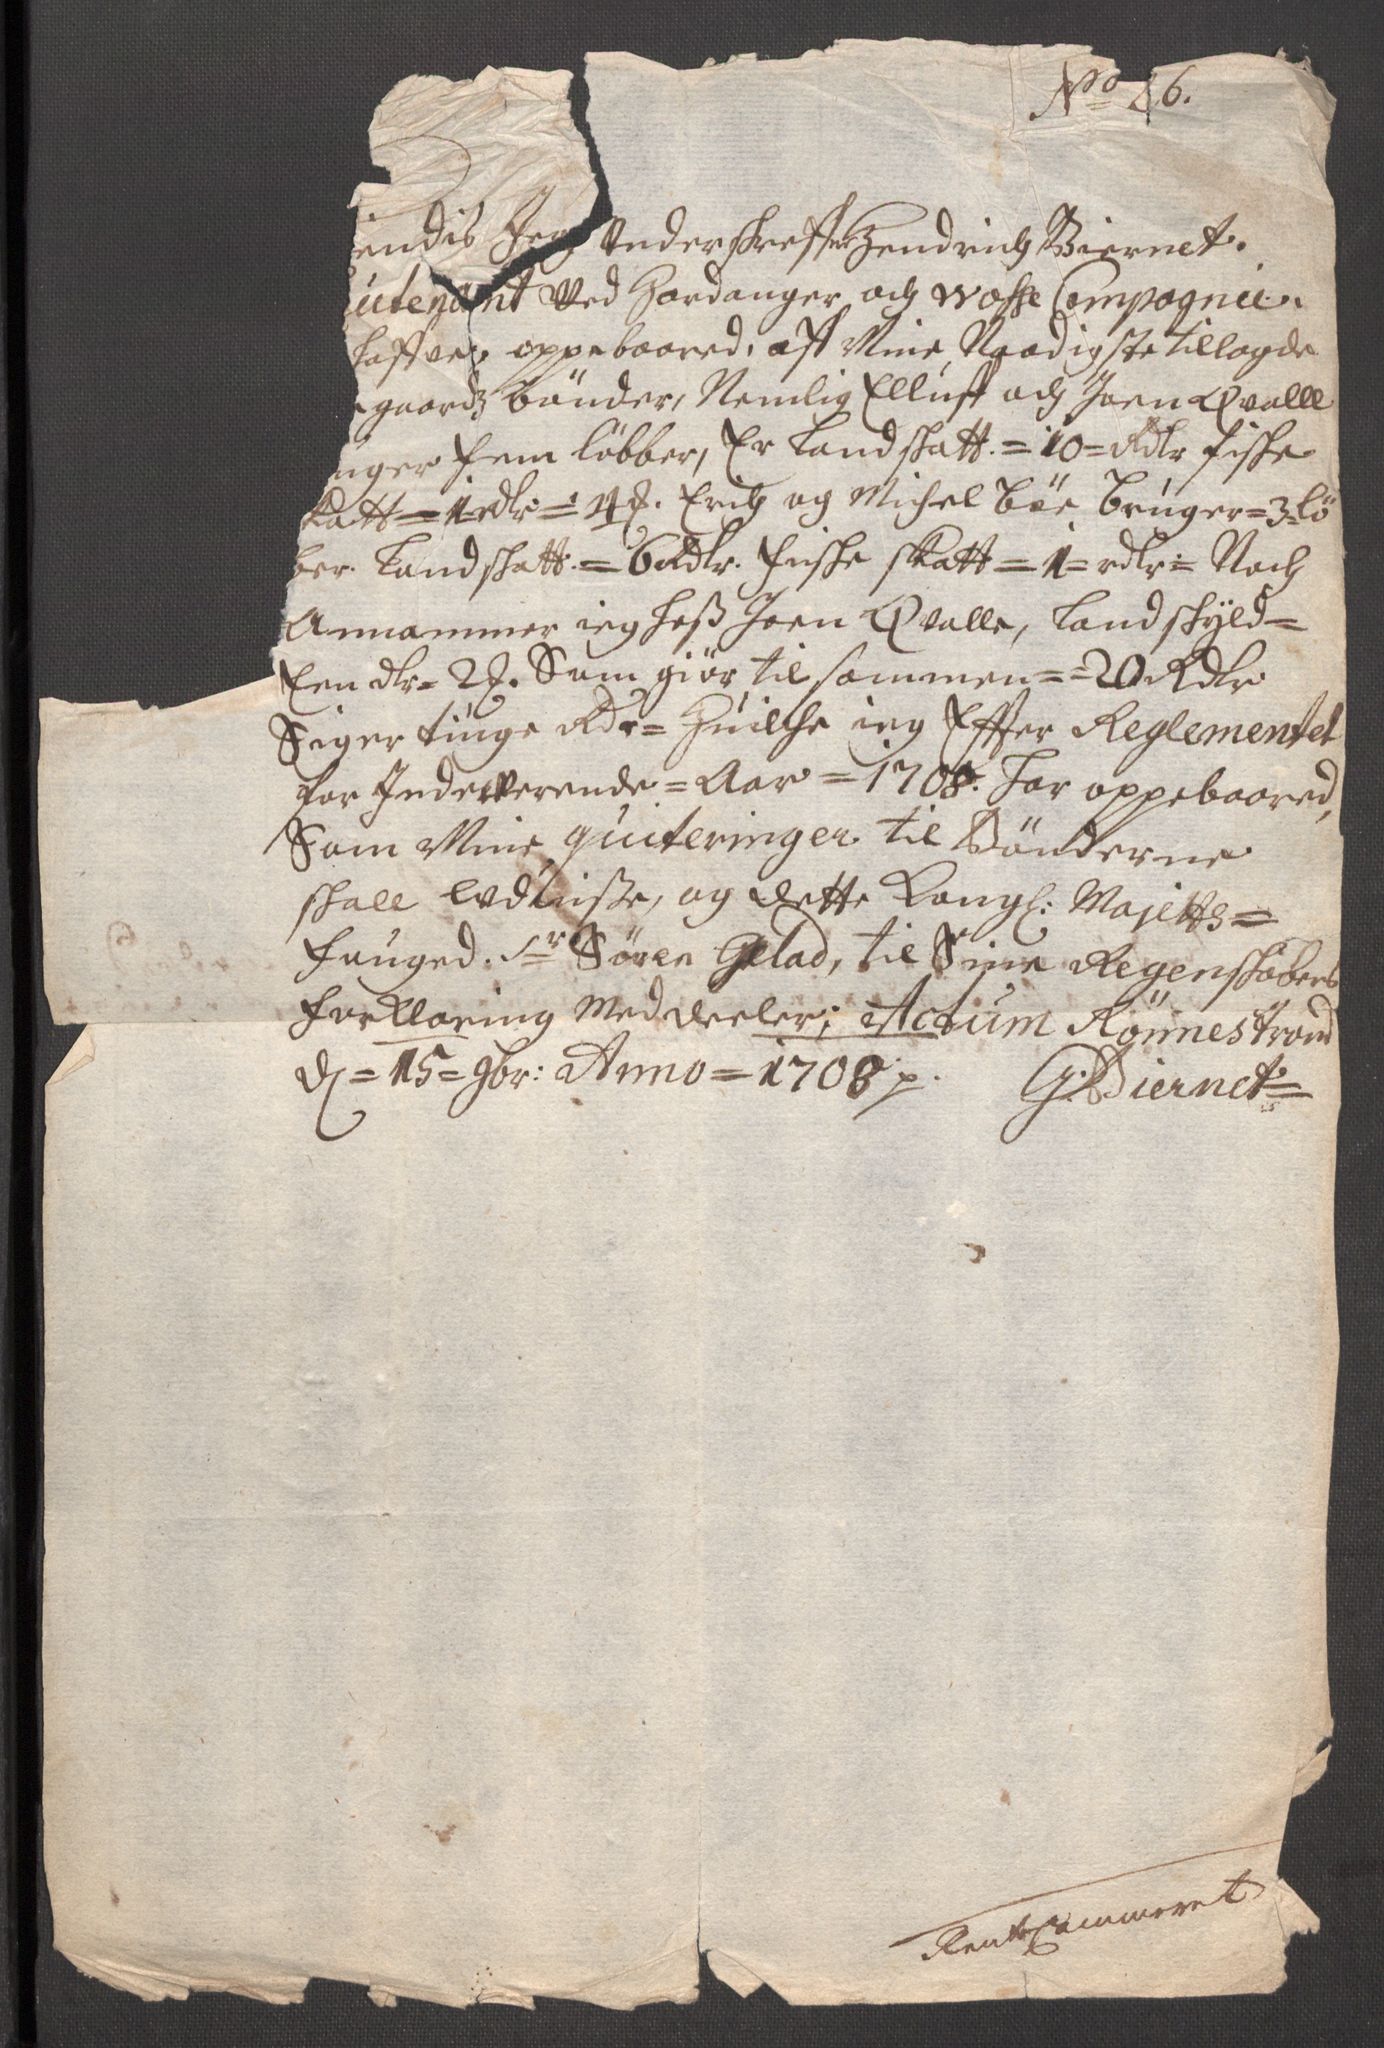 No 46.
endis Jeg Underskreffne Hendrich Biernet.
utenant Ved Hardanger och Wosse Compagnie.
haffver oppebaared, aff Mine Naadigste tillagde
gaardz bönder, Nemlig Elluff och Joen Qvalle
uger fem löbber, Er Landskatt. = 10 = Rdlr fiske
katt = 1 rdlr = Erich og Michel böe, brúger = 3 = Lö
ber. Landskatt. = 6 Rdlr. fiske skatt = 1 = rdlr = Noch
Annammer ieg hoß Joen Qvalle, Landskÿld =
Een dlr = Som giör til sammen = = 20 Rdlr
Siger tiuge Rdr = Huilche ieg Effter Reglementet
for Indeverende = Aar = 1708. har oppebaared,
Som Mine quiteringer til Bönderne
skall udviisse, og dette Kongl: Maÿtts =
Fouged. Sr Sören Gelad, til Sine Regenskabers
forklaring Meddeeler; Actum Rönnestrand
d = 15 = 9br: Anno = 1708 p. G. Biernet =
Rente Cammeret